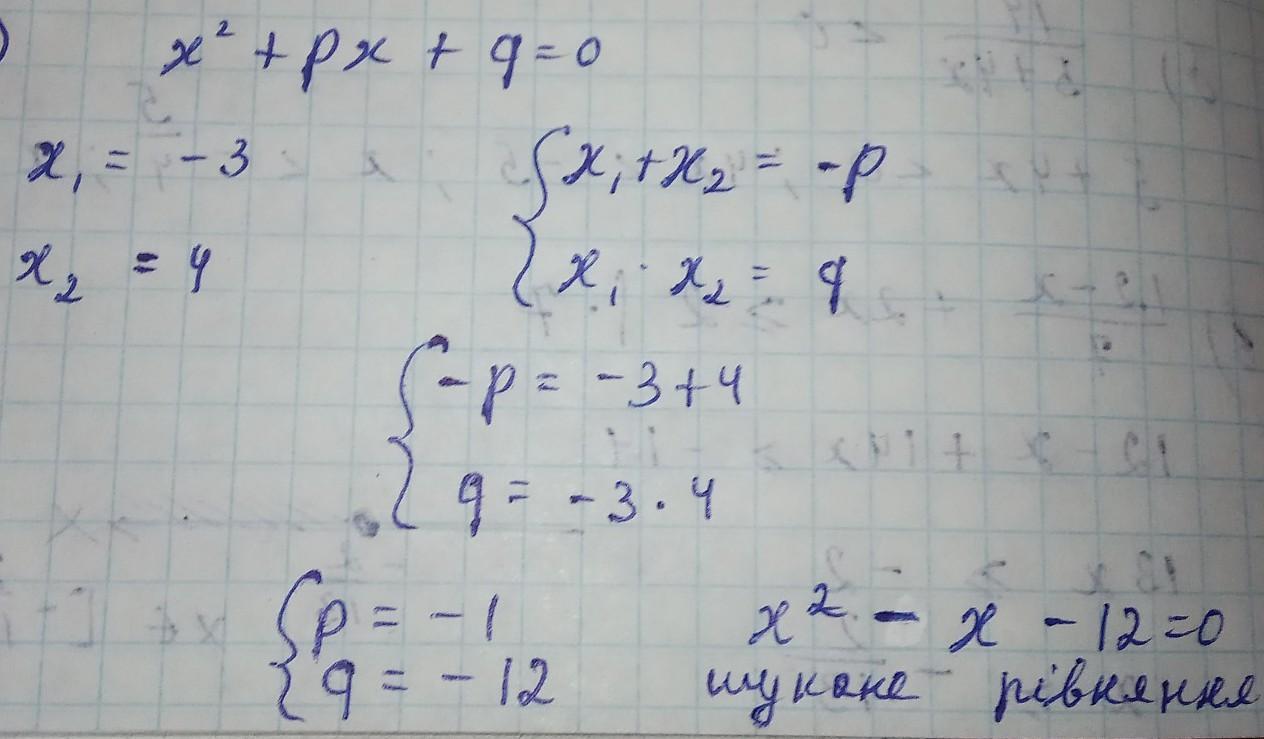 ) x² + px + q = 0
x₁ = -3
x₂ = 4
{ x₁ + x₂ = -p
x₁ · x₂ = q
{ -p = -3 + 4
q = -3 · 4
{ p = -1
q = -12
x² - x - 12 = 0
шукане рівняння